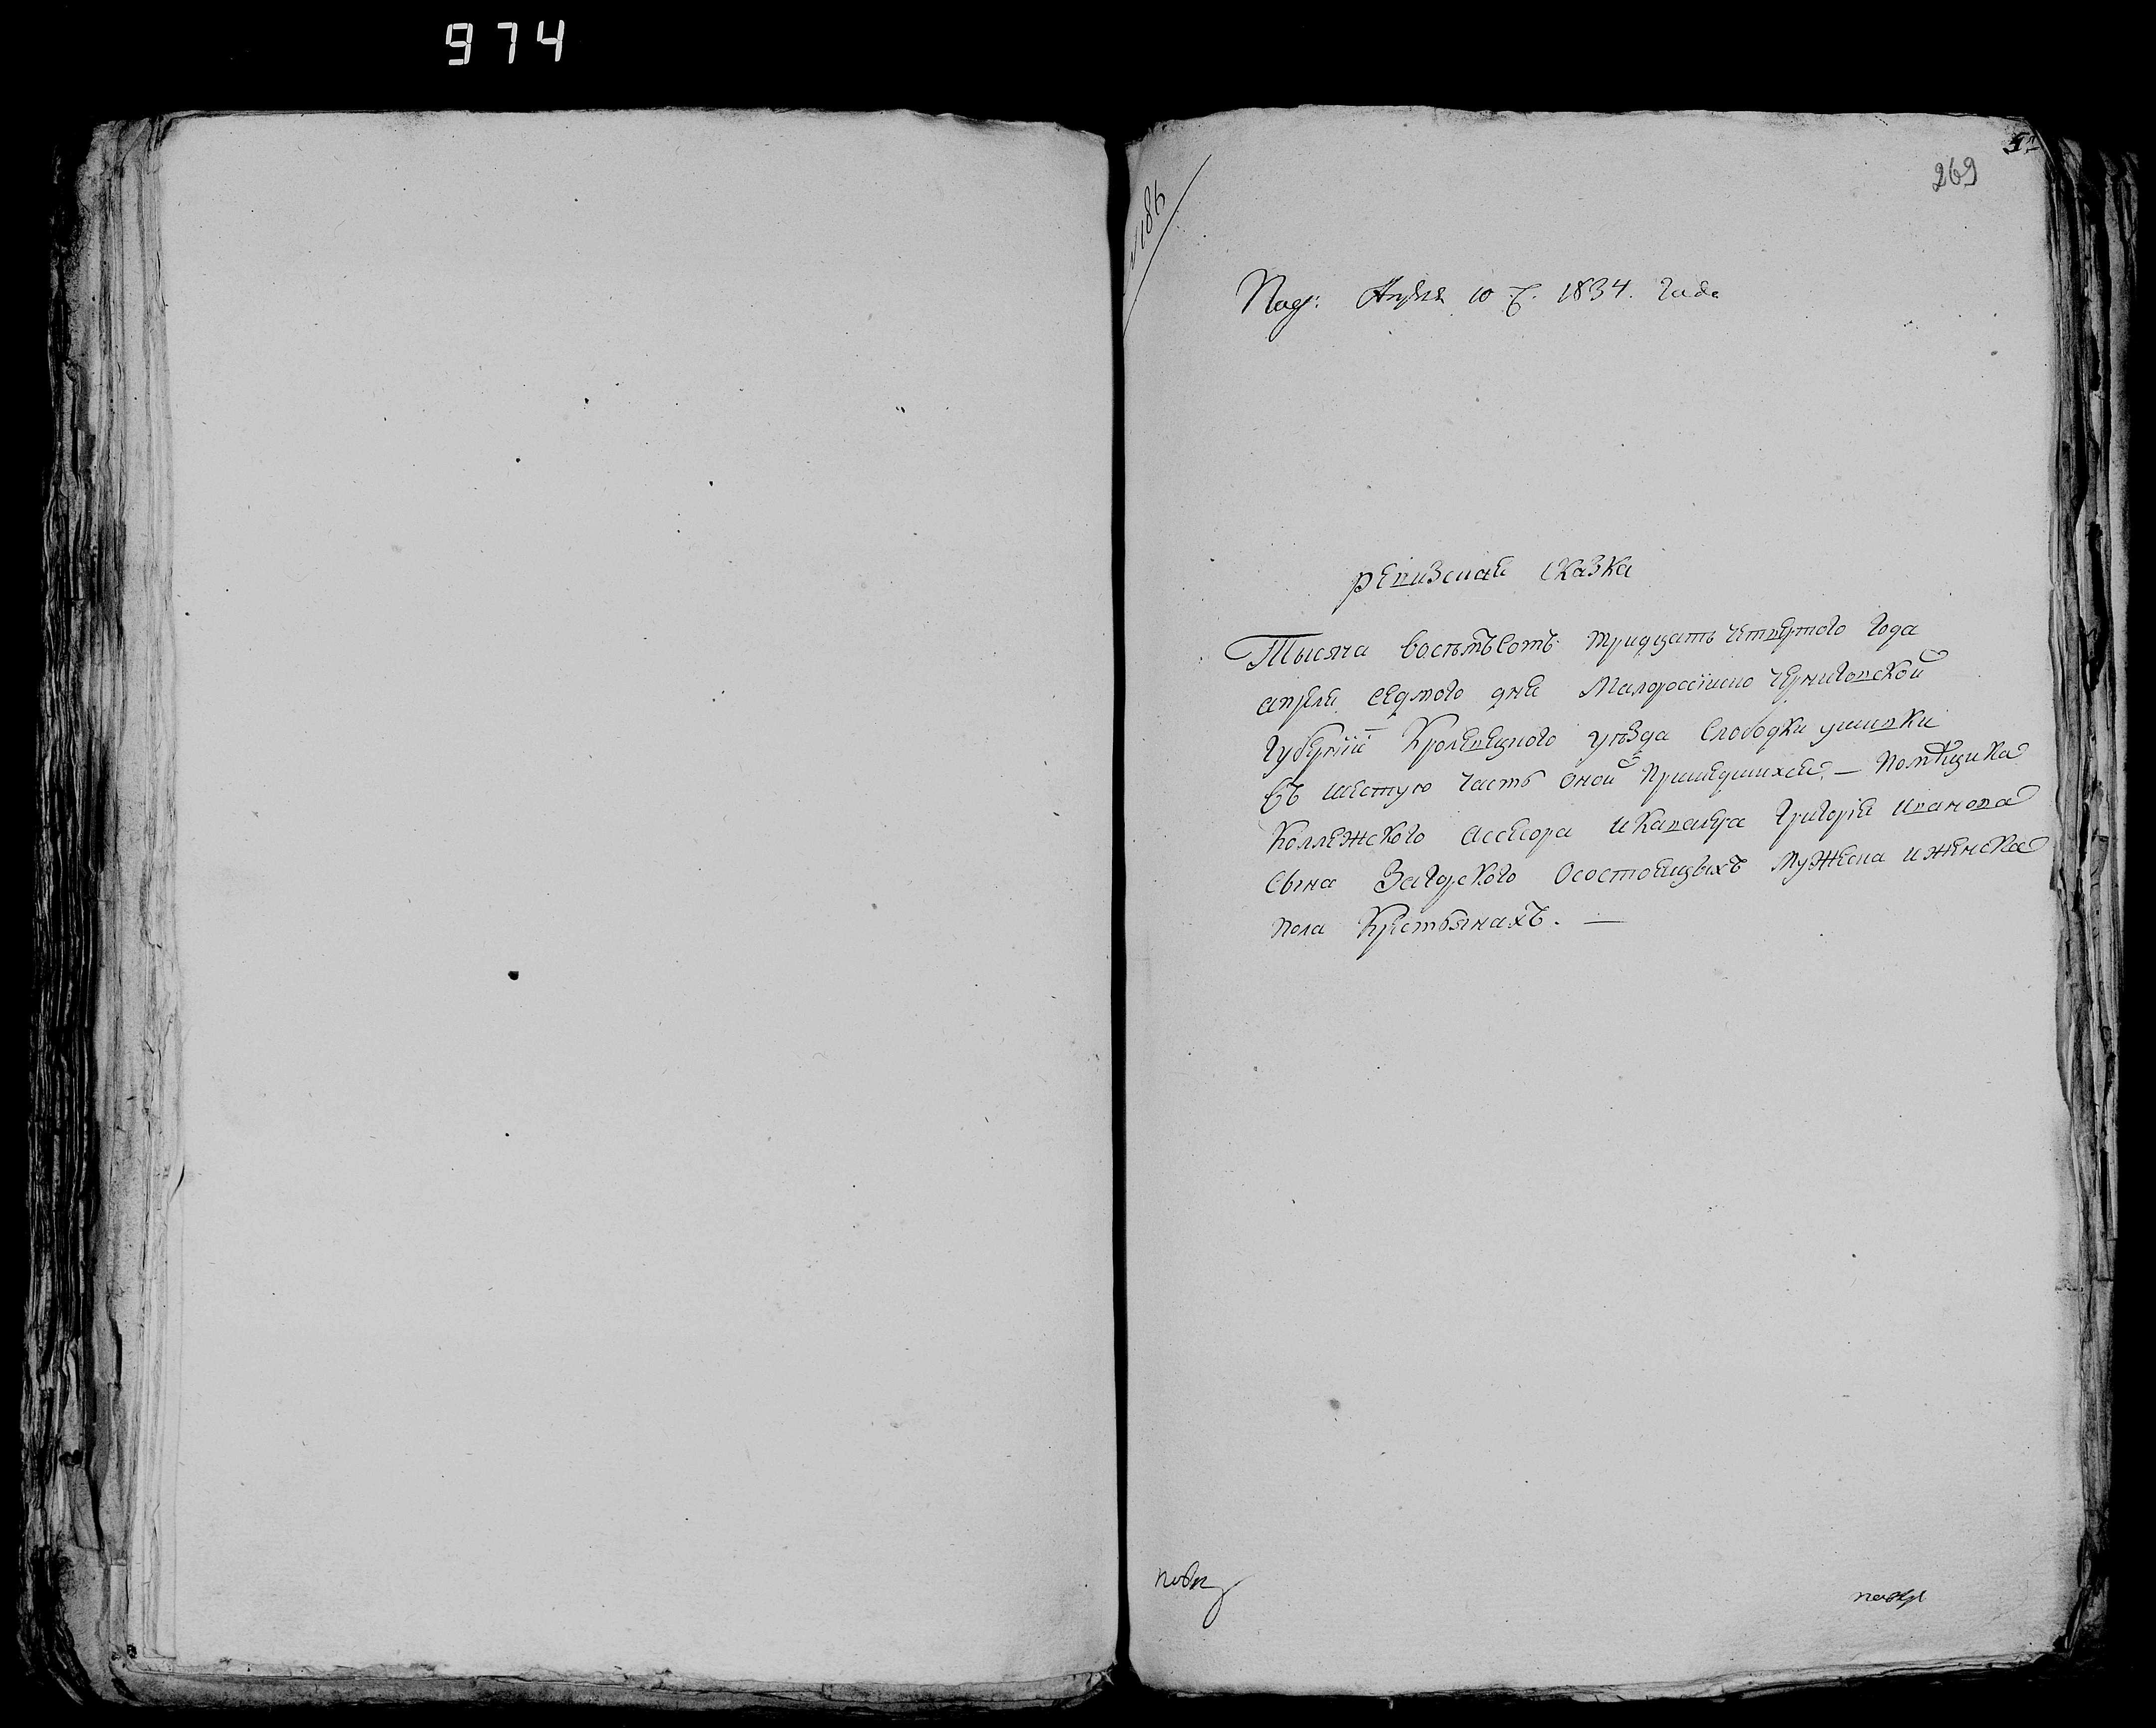 974
269
№ 186
Под: Апреля 10 д. 1834. года
Ревизская сказка
Тысяча восемъсотъ тридцать четвертого года
апреля седмого дня Малороссииско Черниговской
Губернїи Кролевецного уезда Слободки ушивки
въ шестую часть оной пришедшихся — Помѣщика
Коллежского Ассесора и Кавалера Григория Иванова
сына Загорского О состоящихъ мужеска и женска
пола Крестьянахъ. —